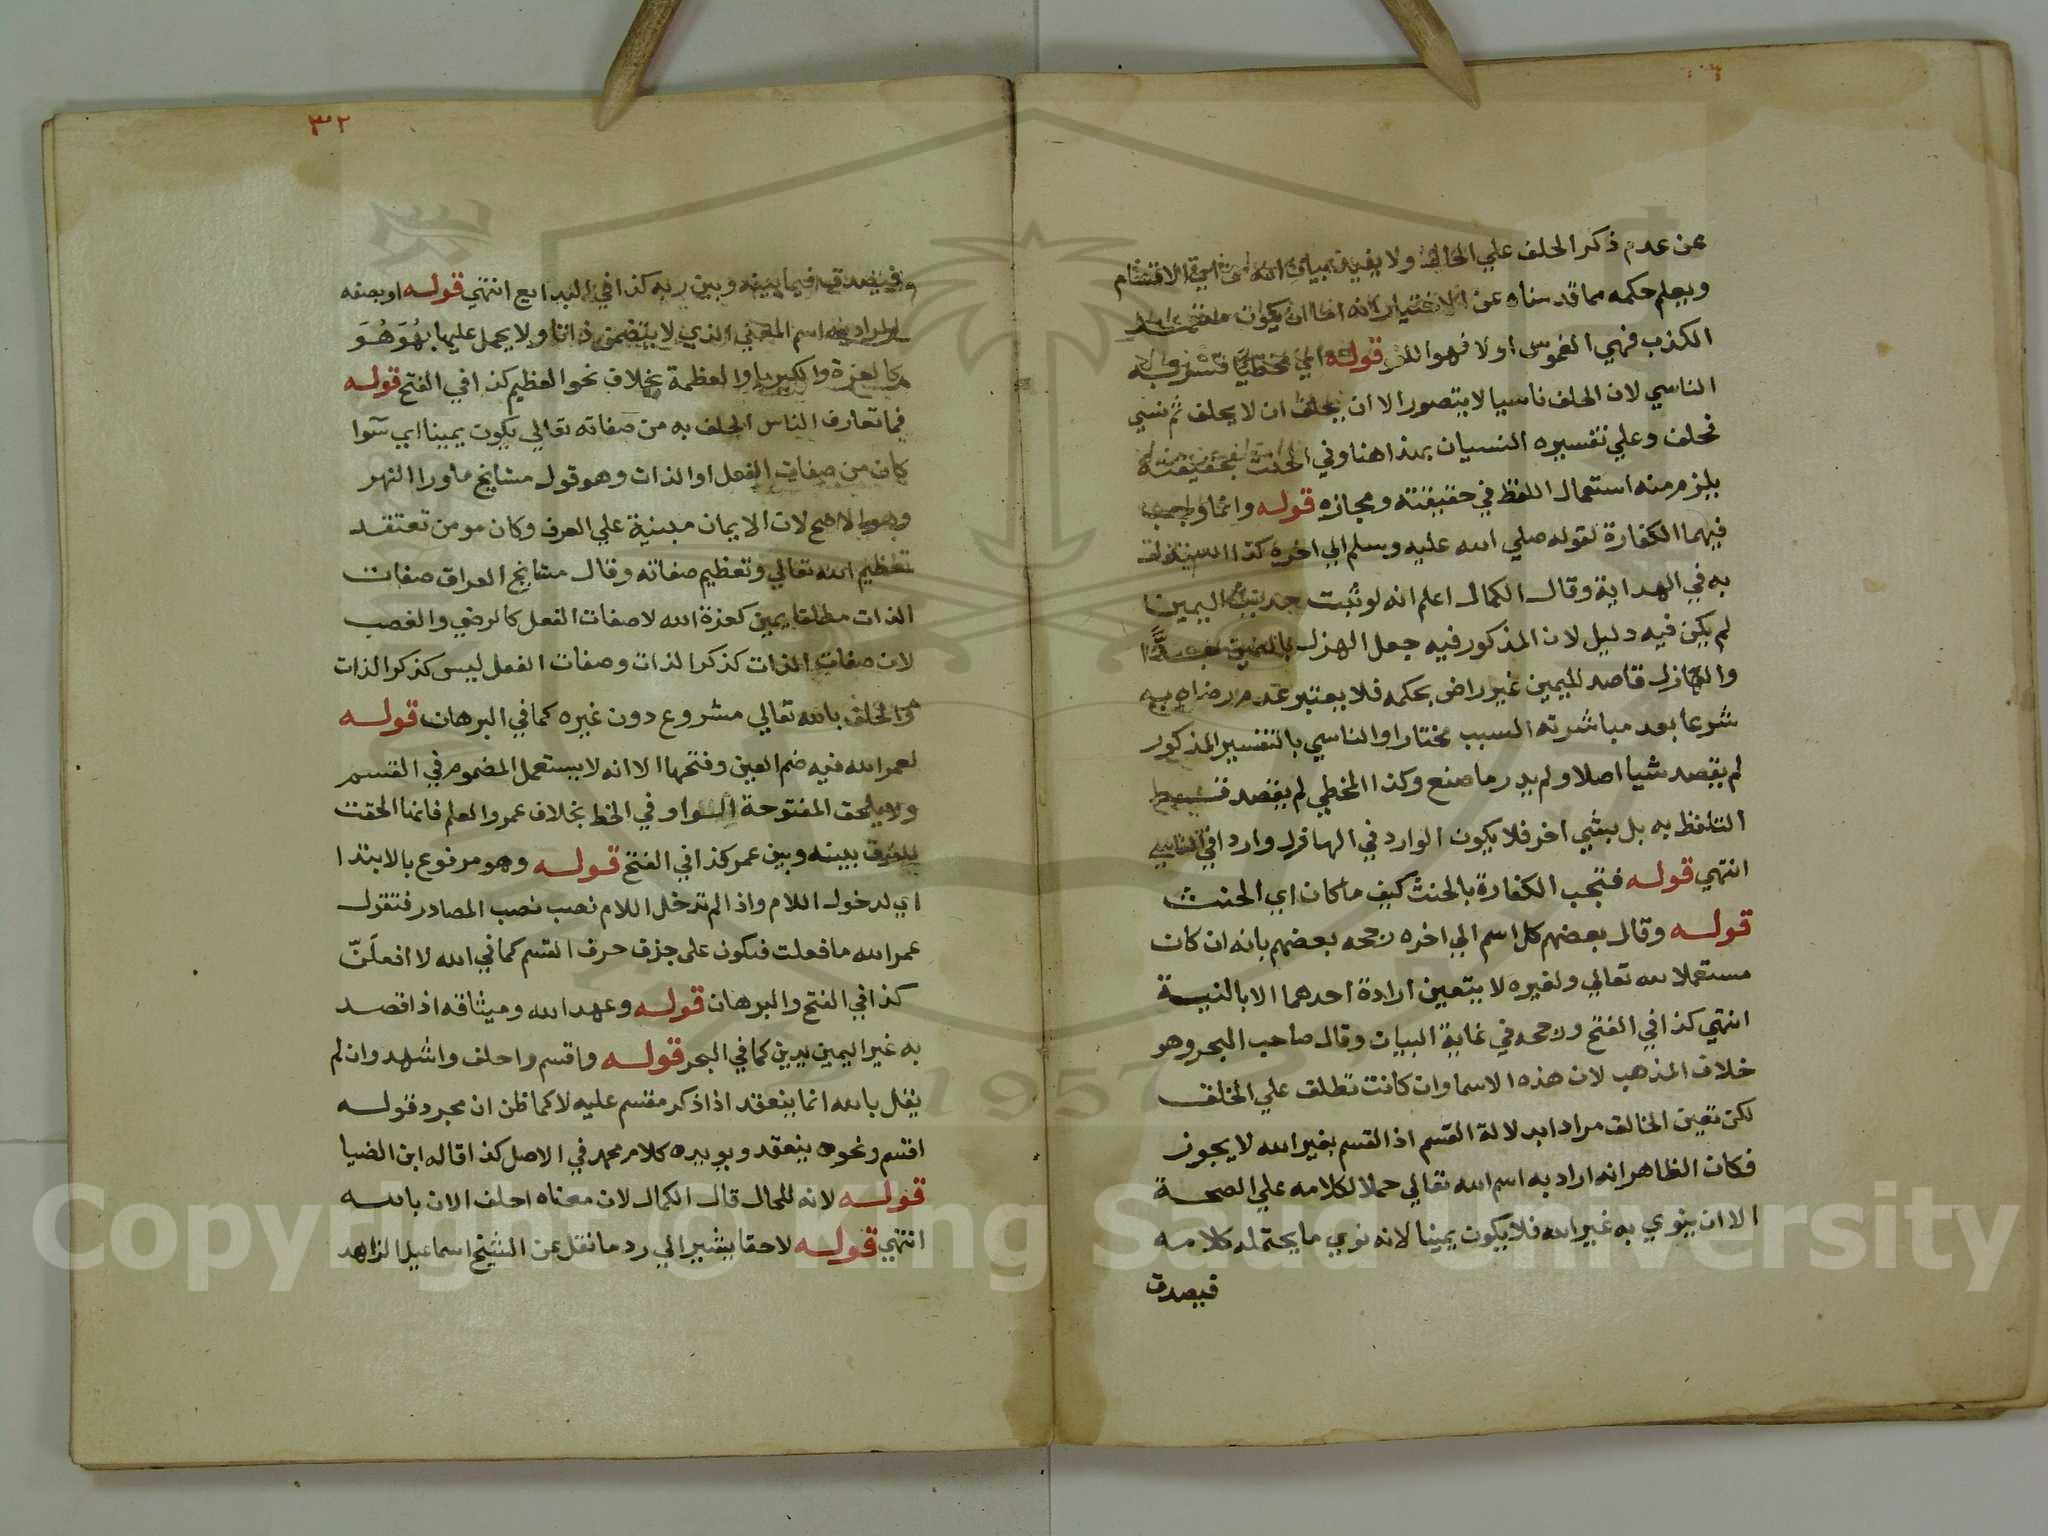 عن عدم ذكر الحلف علي الحال ولا يفيد
ويعلم حكمه مما قدمناه عن الاختيار انه اما ان يكون
الكذب فهي الغموس اولا فهو اللغو قوله اي مخطيا
الناسي لان الحلف ناسيا لا يتصور الا ان يحلف ان لا يحلف ثم نسي
فحلف وعلي تفسيره النسيان بهذا هنا وفي الحنث بحقيقته
يلزم منه استعمال اللفظ في حقيقته ومجازه قوله وانما وجب
فيهما الكفارة لقوله صلي الله عليه وسلم الي اخره كذا استدل
به في الهداية وقال الكمال اعلم انه لو ثبت حديث اليمين
لم يكن فيه دليل لان المذكور فيه جعل الهزل باليمين جدًّا
والهازل قاصد لليمين غير راض بحكمه فلا يعتبر عدم رضاه به
شرعا بعد مباشرته السبب مختارا والناسي بالتفسير المذكور
لم يقصد شيا اصلا ولم يدر ما صنع وكذا المخطي لم يقصد قط
التلفظ به بل بشي اخر فلا يكون الوارد في الهازل واردا في الناسي
انتهي قوله فتجب الكفارة بالحنث كيف ما كان اي الحنث
قوله وقال بعضهم كل اسم الي اخره رجحه بعضهم بانه ان كان
مستعملا لله تعالي ولغيره لا يتعين ارادة احدهما الا بالنية
انتهي كذا في الفتح ورجحه في غاية البيان وقال صاحب البحر وهو
خلاف المذهب لان هذه الاسما وان كانت تطلق علي الخلف
لكن تعين الخالف مرادا بدلالة القسم اذ القسم بغير الله لا يجوز
فكان الظاهر انه اراد به اسم الله تعالي حملا لكلامه علي الصحة
الا ان ينوي به غير الله فلا يكون يمينا لانه نوي ما يحتمله كلامه
فيصدق
٣٢
فيصدق فيما بينه وبين ربه كذا في البدايع انتهي قوله او بصفه
المراد به اسم المعني الذي لا يتضمن ذاتا ولا يحمل عليها بهُوَ هُوَ
كالعزة والكبريا والعظمة بخلاف نحو العظيم كذا في الفتح قوله
فما تعارف الناس الحلف به من صفاته تعالي يكون يمينا اي سوا
كان من صفات الفعل او الذات وهو قول مشايخ ماورا النهر
وهو الاصح لان الايمان مبنية علي العرف وكان مومن تعتقد
تعظيم الله تعالي وتعظيم صفاته وقال مشايخ العراق صفات
الذات مطلقا يمين كعزة الله لا صفات الفعل كالرضي والغصب
لان صفات الذات كذكر الذات وصفات الفعل ليس كذكر الذات
والحلف بالله تعالي مشروع دون غيره كما في البرهان قوله
لعمر الله فيه ضم العين وفتحها الا انه لا يستعمل المضموم في القسم
ولا يلحق المفتوحة الواو في الخط بخلاف عمرو العلم فانما الحقت
للفرق بينه وبين عمر كذا في الفتح قوله وهو مرفوع بالابتدا
اي لدخول اللام واذا لم تدخل اللام نصب نصب المصادر فتقول
عمر الله ما فعلت فيكون على حذف حرف القسم كما في الله لا افعلَنّ
كذا في الفتح والبرهان قوله وعهد الله وميثاقه اذا قصد
به غير اليمين يدين كما في البحر قوله واقسم واحلف واشهد وان لم
يقل بالله انما ينعقد اذا ذكر مقسم عليه لا كما ظن ان مجرد قوله
اقسم ونحوه ينعقد ويويده كلام محمد في الاصل كذا قاله ابن الضيا
قوله لانه للحال قال الكمال لان معناه احلف الان بالله
انتهي قوله لا حقا يشير الي رد ما نقل عن الشيخ اسماعيل الزاهد
Copyright © King Saud University
1957